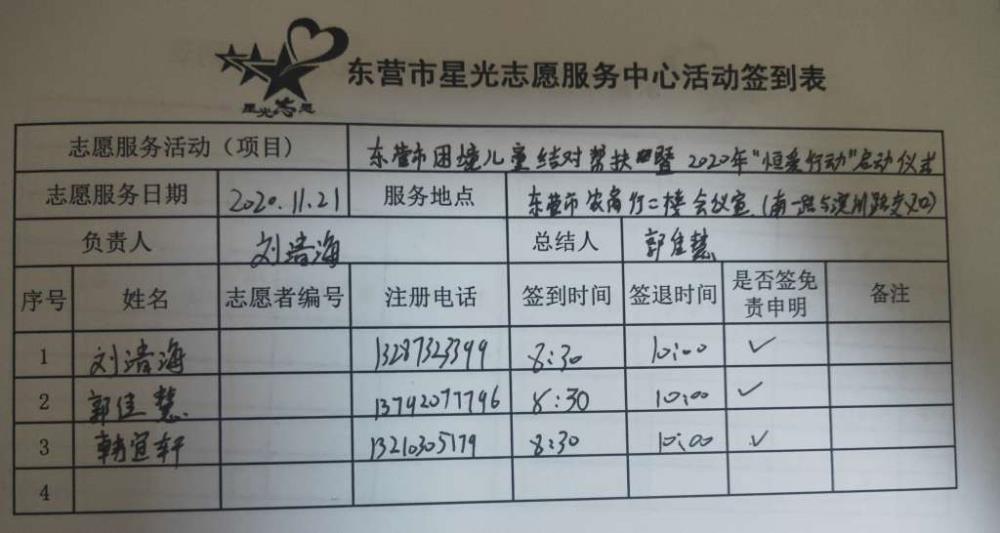 星光志愿
东营市星光志愿服务中心活动签到表
志愿服务活动（项目） 东营市困境儿童结对帮扶暨2020年"恒爱行动"启动仪式
志愿服务日期 2020.11.21 服务地点 东营市农商行二楼会议室（南一路与深圳路交叉口）
负责人 刘浩海 总结人 郭佳慧
序号 姓名 志愿者编号 注册电话 签到时间 签退时间 是否签免责申明 备注
1 刘浩海 13287323399 8:30 10:00 ✓
2 郭佳慧 13792077796 8:30 10:00 ✓
3 韩宜轩 13210305179 8:30 10:00 ✓
4